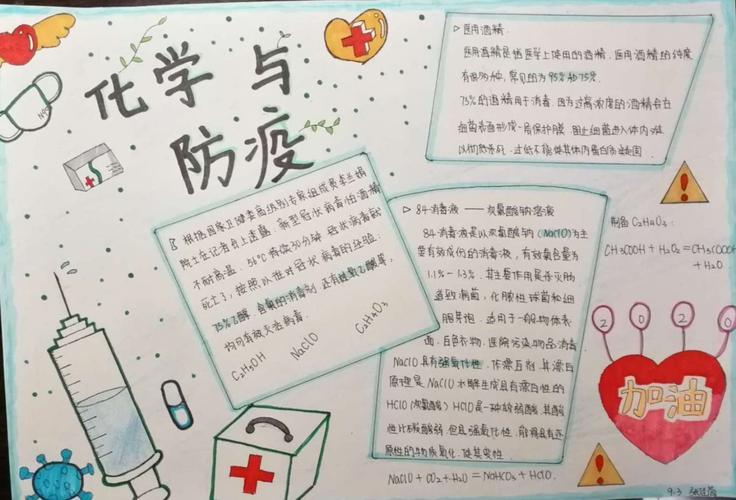 化学与
防疫
医用酒精.
医用酒精是指医学上使用的酒精. 医用酒精的纯度
有很多种, 常见的为95%和75%.
75%的酒精用于消毒. 因为过高浓度的酒精会在
细菌表面形成一层保护膜. 阻止细菌进入体内, 难
以彻底杀死. 过低不能使其体内蛋白质凝固.
根据国家卫健委高级别专家组成员李兰娟
院士在记者会上透露. 新型冠状病毒怕酒精
不耐高温. 56℃持续30分钟. 冠状病毒就
死亡了, 按照以往对冠状病毒的经验:
75%乙醚, 含氯的消毒剂, 还有过氧乙酸等,
均可有效灭活病毒.
C2H5OH NaClO C2H4O3
84消毒液 —— 次氯酸钠溶液
84消毒液是以次氯酸钠(NaClO)为主
要有效成份的消毒液, 有效氯含量为
1.1%-1.3%. 其主要作用是杀灭肠
道致病菌, 化脓性球菌和细
菌芽孢. 适用于一般物体表
面, 白色衣物, 医院污染物品消毒
NaClO具有强氧化性, 作漂白剂. 其漂白
原理是NaClO水解生成具有漂白性的
HClO(次氯酸) HClO是一种较弱酸. 其酸
性比碳酸弱. 但具强氧化性, 能将具有还
原性的物质氧化. 使其变性.
NaClO + CO2 + H2O = NaHCO3 + HClO.
制备C2H4O3:
CH3COOH + H2O2 = CH3COOOH
+ H2O
2 0 2 0
加油
9.3